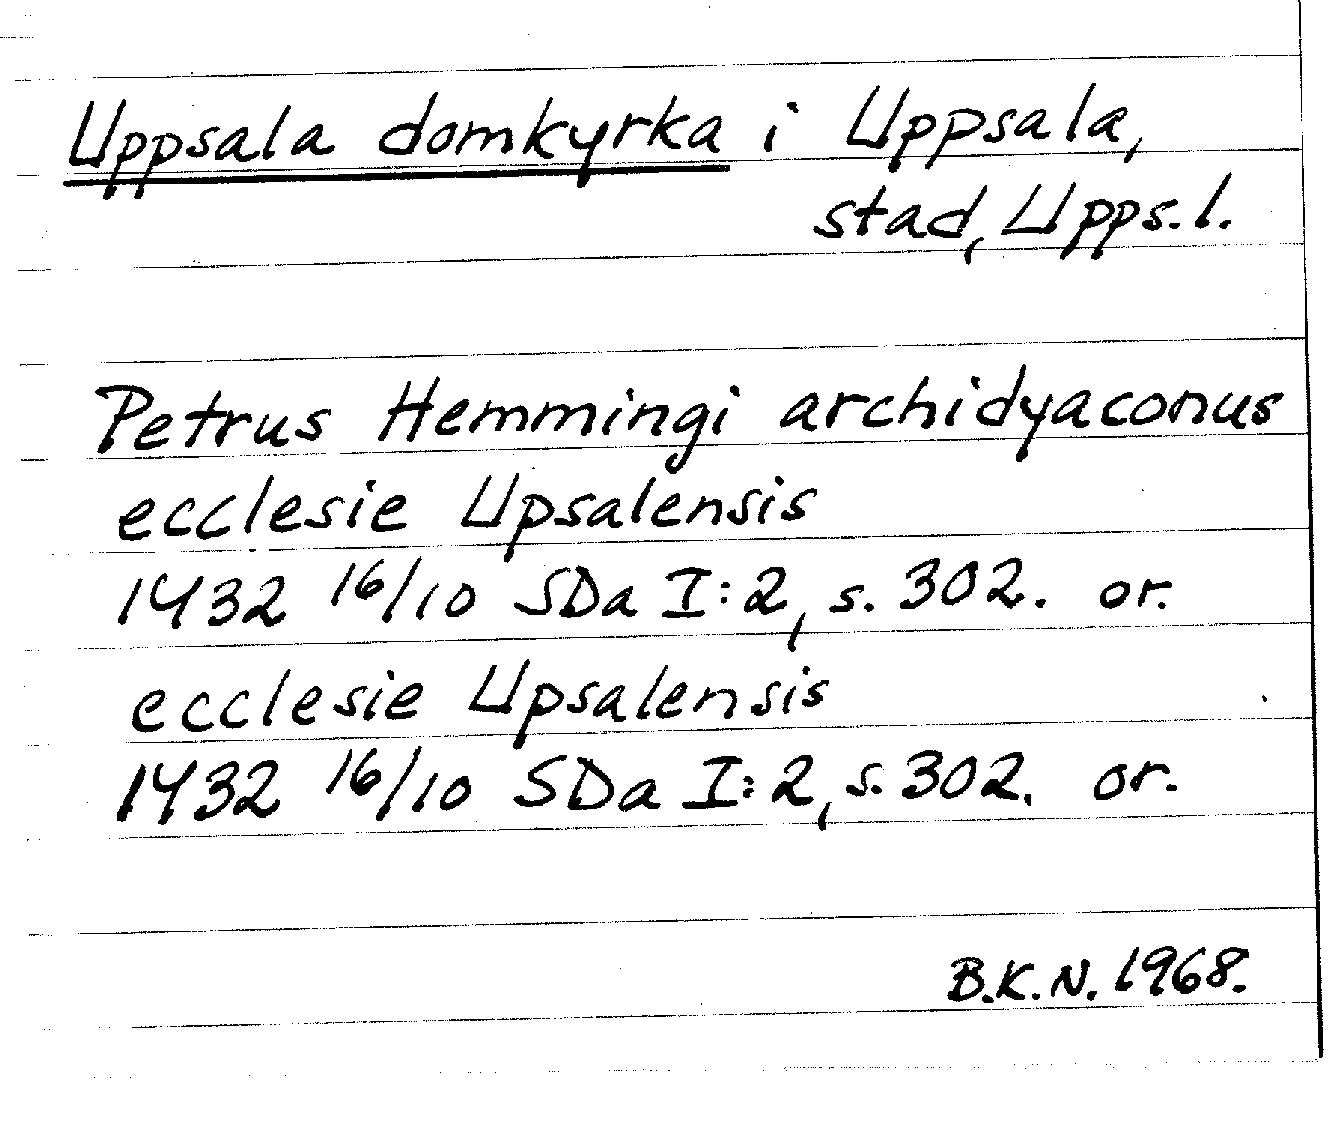 Uppsala domkyrka i Uppsala,
stad, Upps.l.
Petrus Hemmingi archidyaconus
ecclesie Upsalensis
1432 16/10 SDa I:2, s. 302. or.
ecclesie Upsalensis
1432 16/10 SDa I:2, s. 302. or.
B.K.N. 1968.